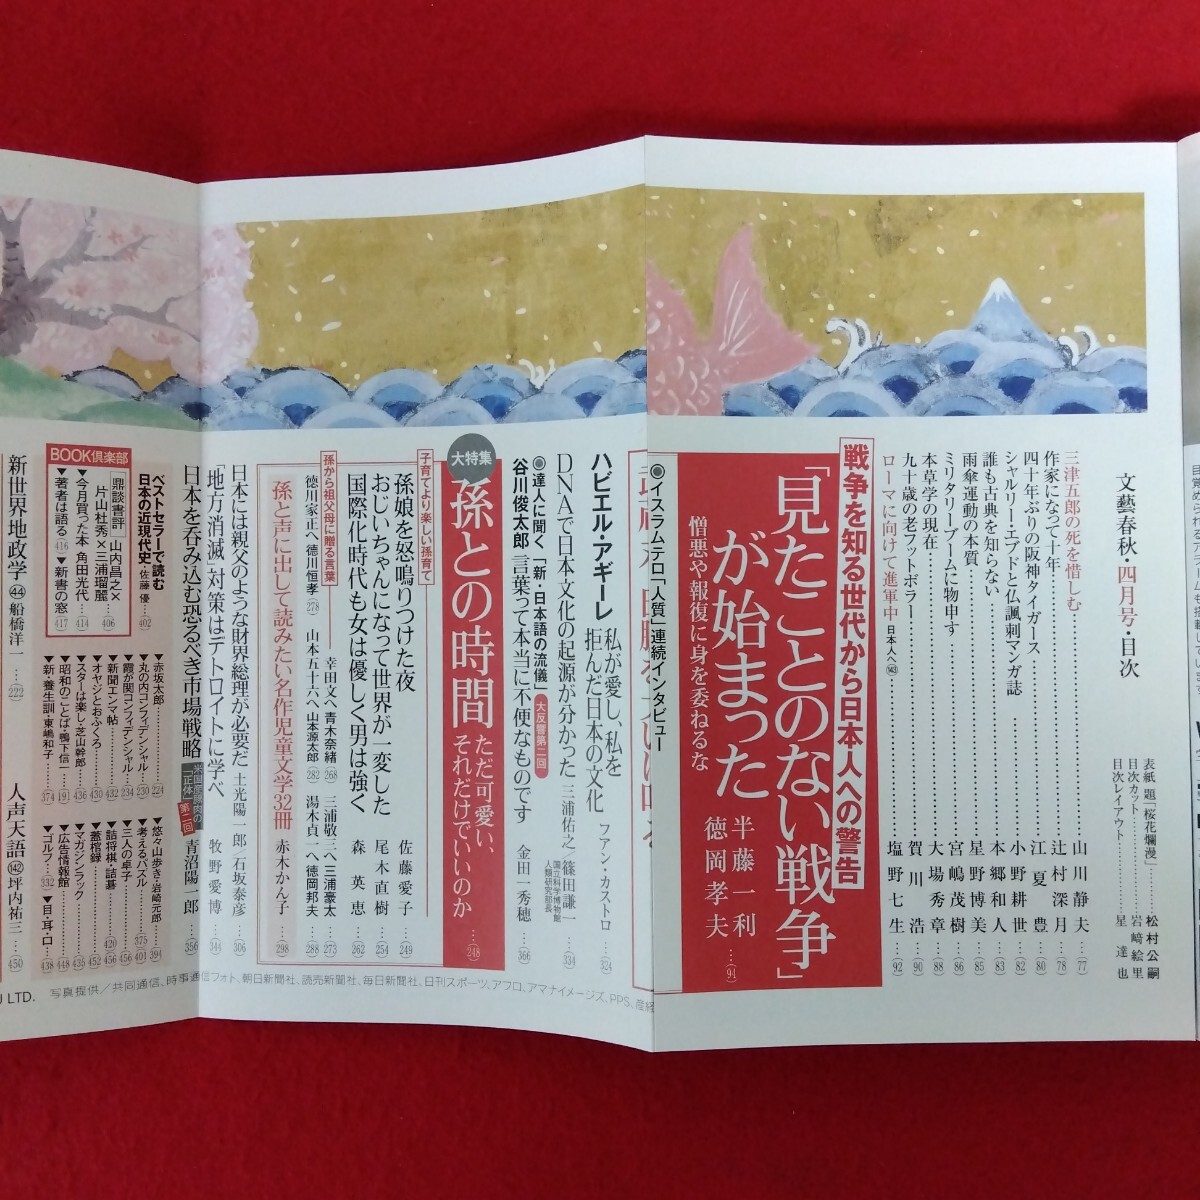 文藝春秋・四月号・目次
表紙 題「桜花爛漫」……松村公嗣
目次カット……岩﨑絵里
目次レイアウト……星 達也
三津五郎の死を惜しむ……山川静夫 77
作家になって十年……辻村深月 78
四十年ぶりの阪神タイガース……江夏 豊 80
シャルリー・エブドと仏諷刺マンガ誌……小野耕世 82
誰も古典を知らない……本郷和人 83
雨傘運動の本質……星野博美 85
ミリタリーブームに物申す……宮嶋茂樹 86
本草学の現在……大場秀章 88
九十歳の老フットボーラー……賀川 浩 90
ローマに向けて進軍中 日本人へ 塩野七生 92
戦争を知る世代から日本人への警告
「見たことのない戦争」
が始まった
憎悪や報復に身を委ねるな
半藤一利
徳岡孝夫 …(94)
◉イスラムテロ「人質」連続インタビュー
ハビエル・アギーレ 私が愛し、私を拒んだ日本の文化 ファン・カストロ…324
DNAで日本文化の起源が分かった 三浦佑之 篠田謙一 国立科学博物館人類研究部長 …334
◉達人に聞く「新・日本語の流儀」 大反響第二回
谷川俊太郎 言葉って本当に不便なものです 金田一秀穂…366
大特集
孫との時間 ただ可愛い、それだけでいいのか…248
子育てより楽しい孫育て
孫娘を怒鳴りつけた夜 佐藤愛子 249
おじいちゃんになって世界が一変した 尾木直樹 254
国際化時代も女は優しく男は強く 森 英恵 262
孫から祖父母に贈る言葉
幸田文へ 青木奈緒 268 三浦敬三へ 三浦豪太 273
徳川家正へ 徳川恒孝 278 山本五十六へ 山本源太郎 282 湯木貞一へ 徳岡邦夫 288
孫と声に出して読みたい名作児童文学32冊 赤木かん子…298
日本には親父のような財界総理が必要だ 土光陽一郎 石坂泰彦…306
「地方消滅」対策はデトロイトに学べ 牧野愛博…344
日本を呑み込む恐るべき市場戦略 第二回 青沼陽一郎…356
ベストセラーで読む
日本の近現代史・佐藤 優…402
BOOK倶楽部
鼎談書評 山内昌之×
片山杜秀×三浦瑠麗…406
▼今月買った本 角田光代…414
▼著者は語る 416 ▼新書の窓 417
▼赤坂太郎……224
▼丸の内コンフィデンシャル…230
▼霞が関コンフィデンシャル…234
▼新聞エンマ帖……432
▼オヤジとおふくろ……430
▼スターは楽し・芝山幹郎…436
▼昭和のことば・鴨下信一…191
▼新・養生訓・東嶋和子…374
▼悠々山歩き・岩崎元郎…394
▼考えるパズル……375 401
▼三人の卓子……456
▼詰将棋・詰碁……420
▼蓋棺録……452
▼マガジンラック……435
▼広告情報館……448
▼ゴルフ…332 ▼目・耳・口…438
新世界地政学 44 船橋洋一…222
人声天語 142 坪内祐三…450
U LTD. 写真提供／共同通信、時事通信フォト、朝日新聞社、読売新聞社、毎日新聞社、日刊スポーツ、アフロ、アマナイメージズ、PPS、産経